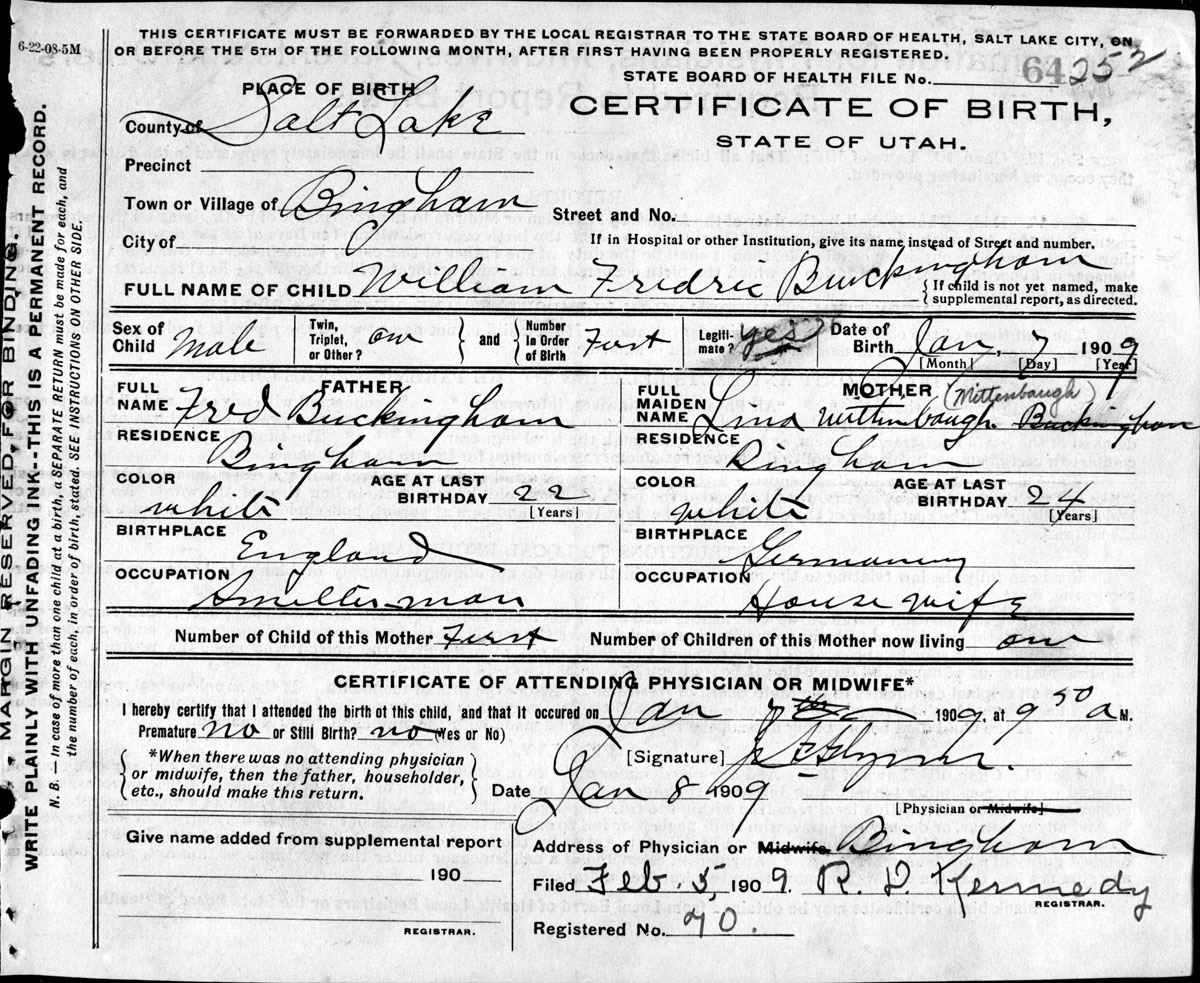 6-22-08-5M
THIS CERTIFICATE MUST BE FORWARDED BY THE LOCAL REGISTRAR TO THE STATE BOARD OF HEALTH, SALT LAKE CITY, ON
OR BEFORE THE 5TH OF THE FOLLOWING MONTH, AFTER FIRST HAVING BEEN PROPERLY REGISTERED.
STATE BOARD OF HEALTH FILE No. 64 252
PLACE OF BIRTH
CERTIFICATE OF BIRTH,
STATE OF UTAH.
County of Salt Lake
Precinct
Town or Village of Bingham
Street and No.
City of
If in Hospital or other Institution, give its name instead of Street and number.
FULL NAME OF CHILD William Fredric Buckingham
{ If child is not yet named, make
supplemental report, as directed.
Sex of Child Male
Twin, Triplet, or Other? one } and { Number In Order of Birth First
Legitimate? yes
Date of Birth Jan, 7 1909
[Month] [Day] [Year]
FATHER
FULL NAME Fred Buckingham
RESIDENCE Bingham
COLOR white
AGE AT LAST BIRTHDAY 22 [Years]
BIRTHPLACE England
OCCUPATION Smelter man
MOTHER (Mittenbaugh)
FULL MAIDEN NAME Lina Withinbaugh Buckingham
RESIDENCE Bingham
COLOR white
AGE AT LAST BIRTHDAY 24 [Years]
BIRTHPLACE Germany
OCCUPATION House wife
Number of Child of this Mother First
Number of Children of this Mother now living one
CERTIFICATE OF ATTENDING PHYSICIAN OR MIDWIFE*
I hereby certify that I attended the birth of this child, and that it occured on Jan 7th 1909, at 9 50 a M.
Premature no or Still Birth? no (Yes or No)
{ *When there was no attending physician
or midwife, then the father, householder,
etc., should make this return. }
[Signature]
Date Jan 8 1909
[Physician or Midwife]
Give name added from supplemental report
190
REGISTRAR.
Address of Physician or Midwife, Bingham
Filed Feb. 5 1909. R. D. Kennedy
REGISTRAR.
Registered No. 70.
MARGIN RESERVED FOR BINDING
WRITE PLAINLY WITH UNFADING INK--THIS IS A PERMANENT RECORD.
N. B.—In case of more than one child at a birth, a SEPARATE RETURN must be made for each, and
the number of each, in order of birth, stated. SEE INSTRUCTIONS ON OTHER SIDE.